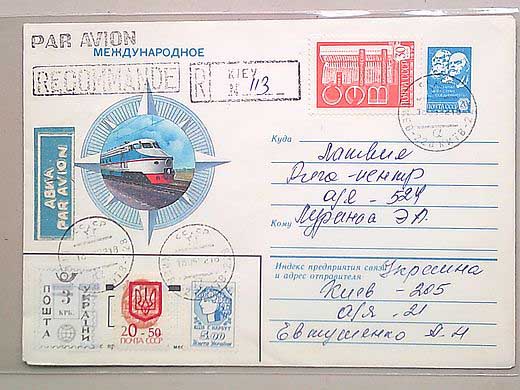 PAR AVION
МЕЖДУНАРОДНОЕ
RECOMMANDE
R KIEV
N 113
30
ПОЧТА СССР
СЭВ
АВИА
PAR AVION
Куда Латвия
Рига-центр
а/я - 524
Кому
Э А.
Индекс предприятия связи
и адрес отправителя
Украина
Киев - 205
а/я - 21
Евтушенко А.Н
СССР
3
КРБ.
ПОШТА
УКРАЇНИ
20-50
ПОЧТА СССР
5.00
Пошта України